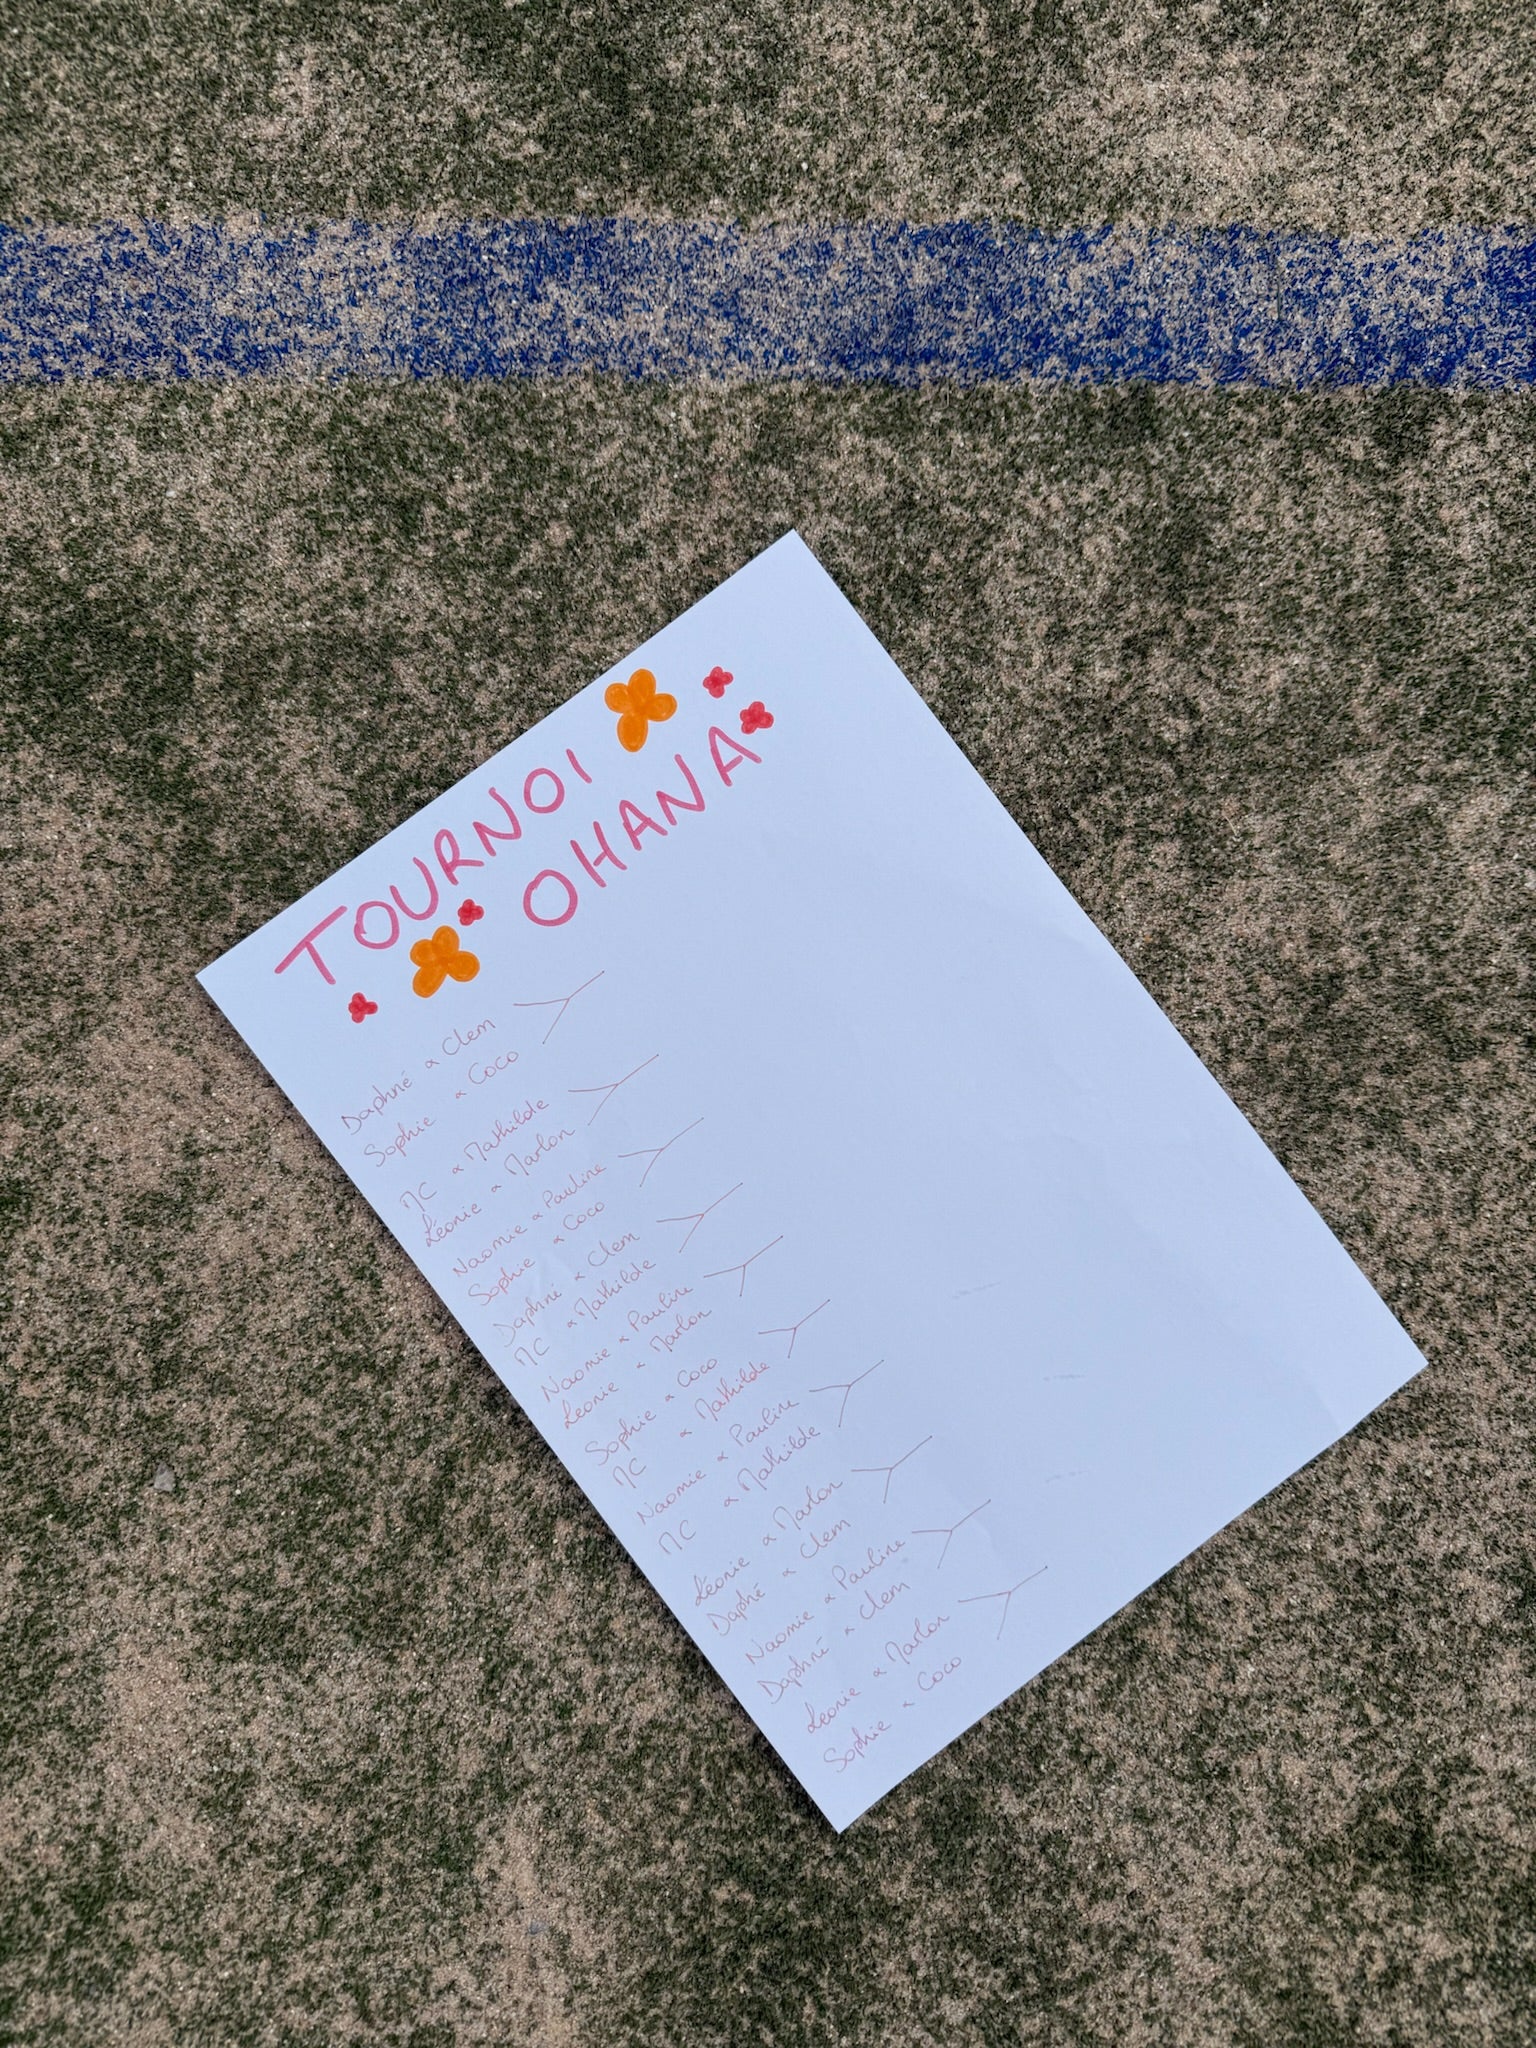 TOURNOI
OHANA
Daphné & Clem
Sophie & Coco
MC & Mathilde
Léonie & Marlon
Naomie & Pauline
Sophie & Coco
Daphné & Clem
MC & Mathilde
Naomie & Pauline
Léonie & Marlon
Sophie & Coco
MC & Mathilde
Naomie & Pauline
MC & Mathilde
Léonie & Marlon
Daphé & Clem
Naomie & Pauline
Daphné & Clem
Léonie & Marlon
Sophie & Coco